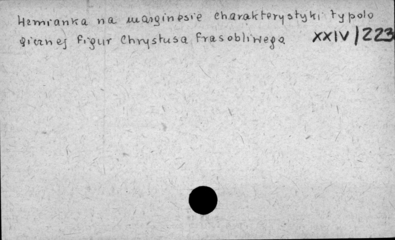 Wzmianka na marginesie charakterystyki typolo
gicznej figur Chrystusa Frasobliwego XXIV/223